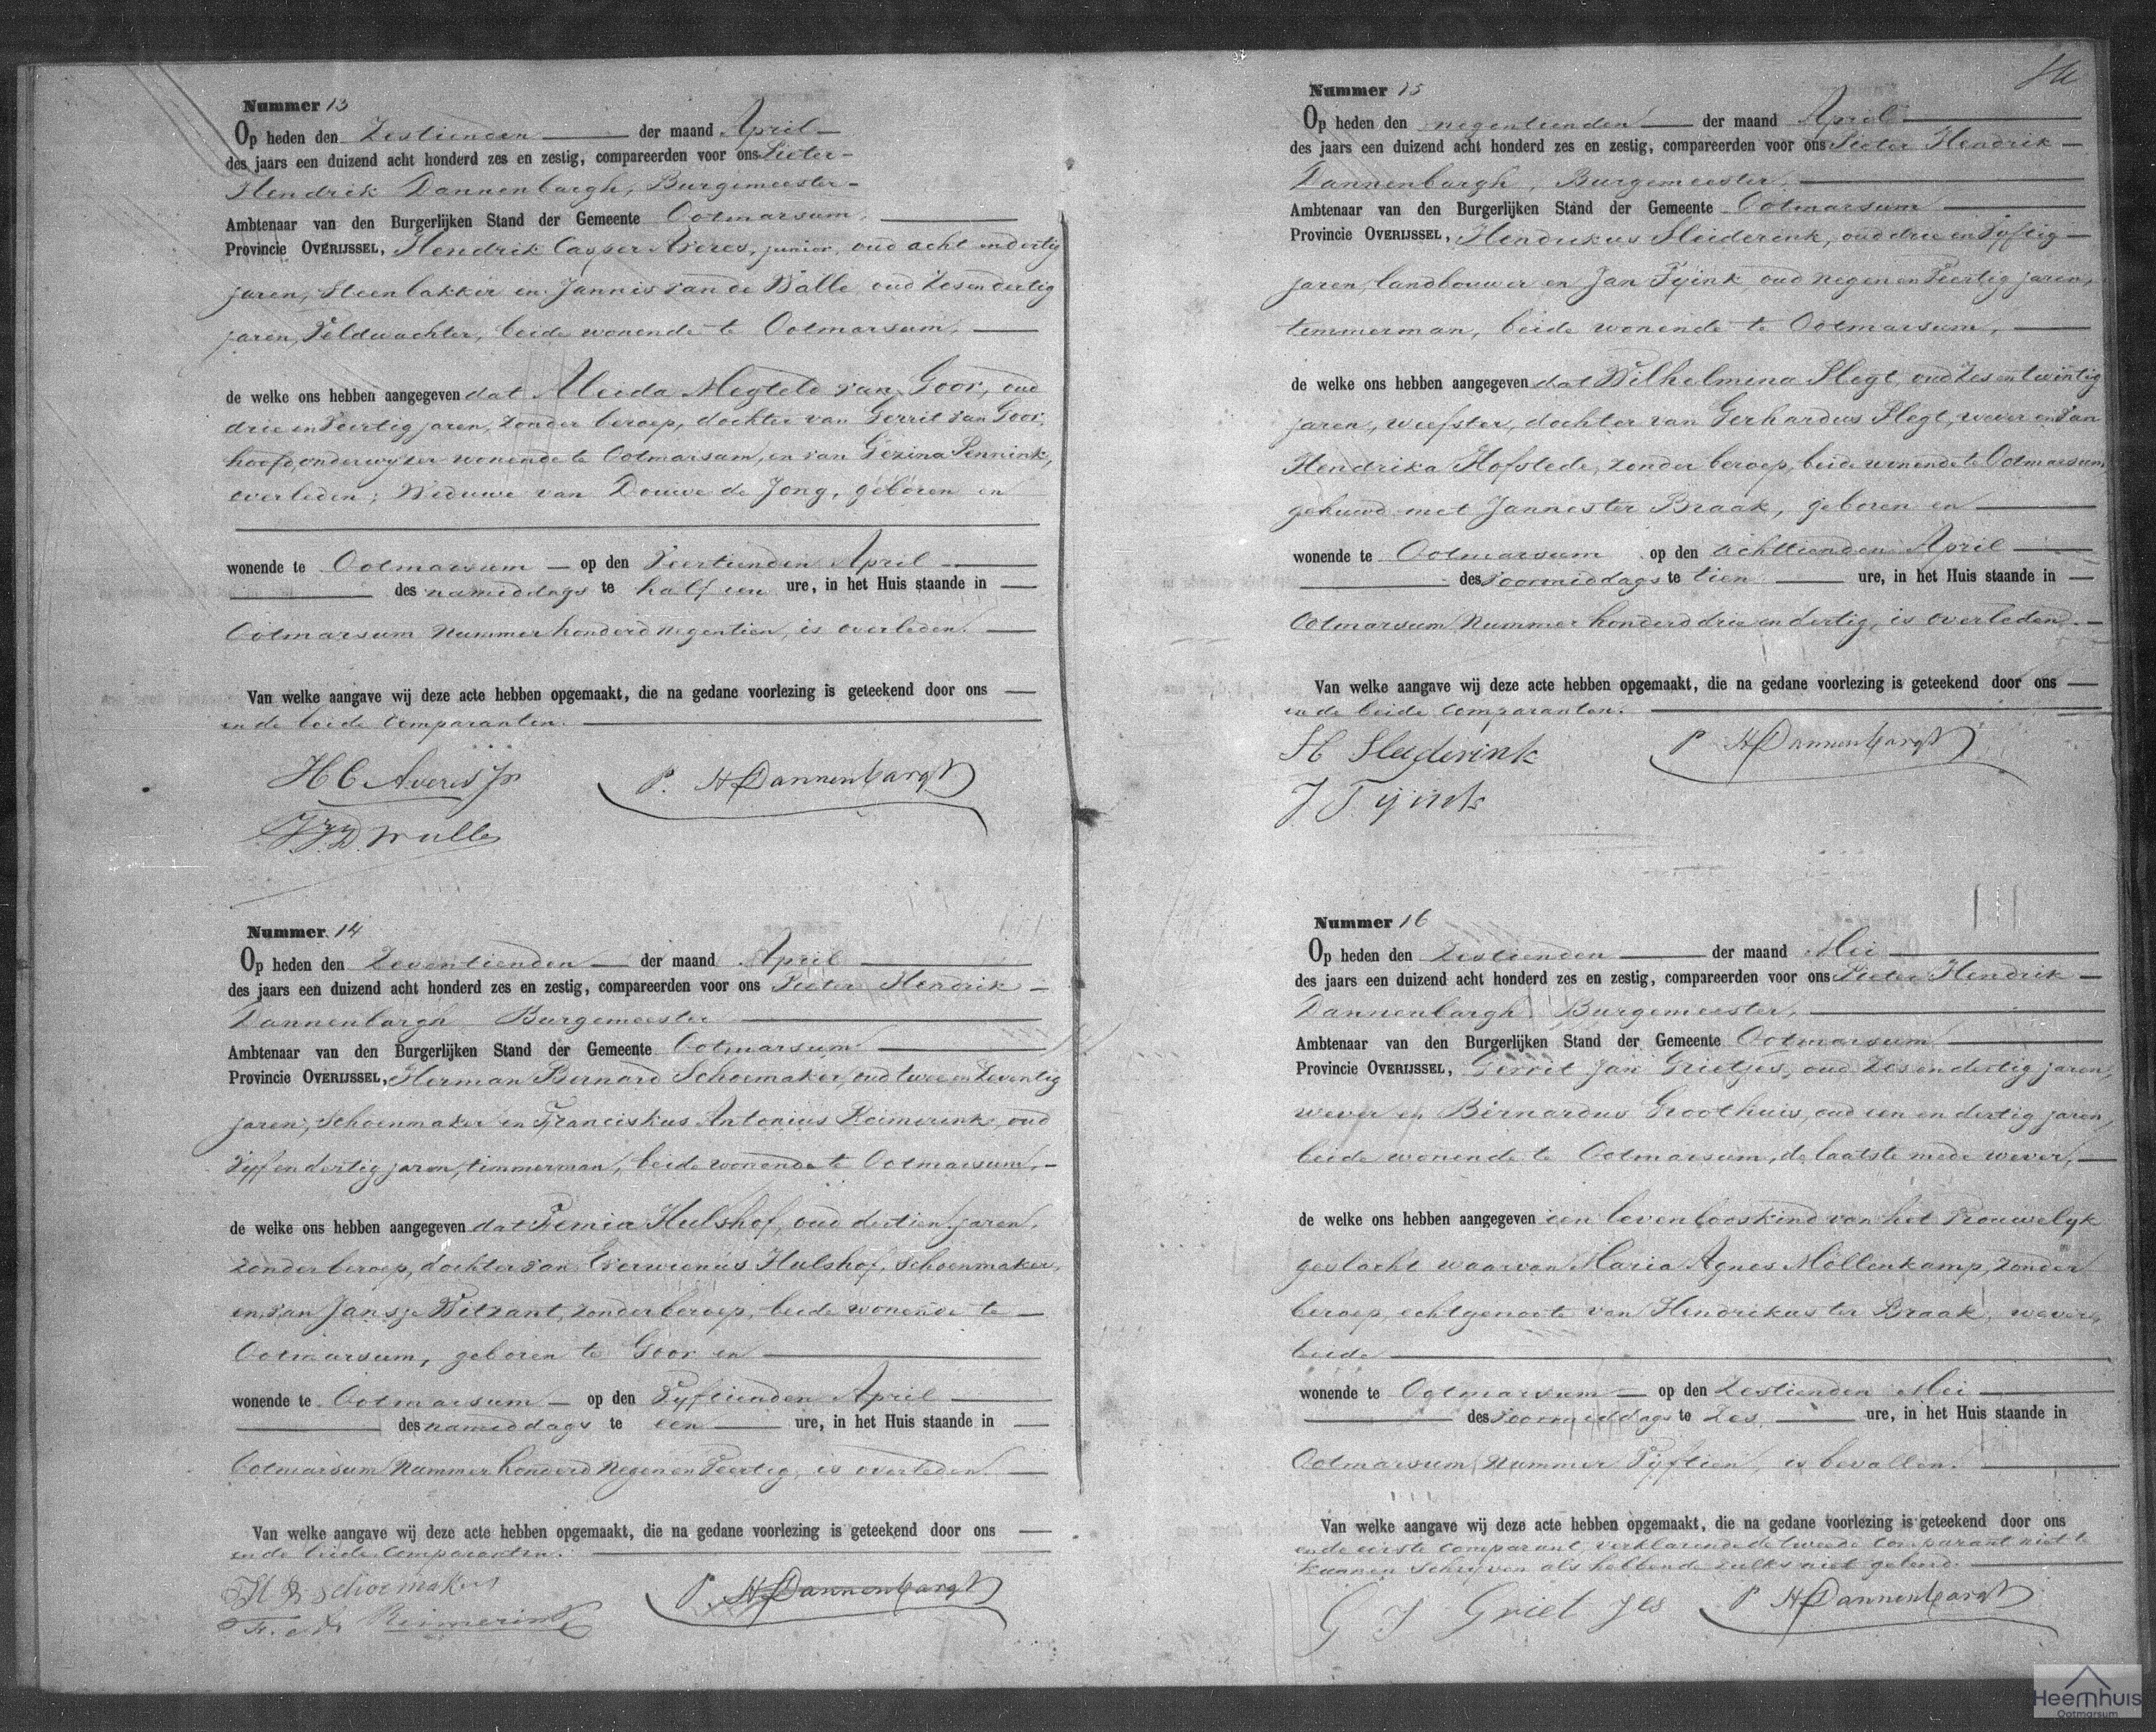 Nummer 13
Op heden den Zestienden der maand April
des jaars een duizend acht honderd zes en zestig, compareerden voor ons Pieter
Hendrik Dannenbargh, Burgemeester
Ambtenaar van den Burgerlijken Stand der Gemeente Ootmarsum,
Provincie OVERIJSSEL, Hendrik Casper Averes, junior, oud acht en dertig
jaren, steenbakker en Jannis van de Walle oud zes en dertig
jaren, Veldwachter, beide wonende te Ootmarsum,
de welke ons hebben aangegeven dat Aleida Megteld van Goor, oud
drie en Veertig jaren, zonder beroep, dochter van Gerrit van Goor,
hoofdonderwyzer wonende te Ootmarsum, en van Gezina Sennink,
overleden; Weduwe van Douwe de Jong, geboren en
wonende te Ootmarsum op den Veertienden April
des namiddags te half een ure, in het Huis staande in
Ootmarsum Nummer honderd negentien, is overleden.
Van welke aangave wij deze acte hebben opgemaakt, die na gedane voorlezing is geteekend door ons
en de beide comparanten.
H C Averes Jr P. H Dannenbargh
Walle
Nummer 14
Op heden den Zeventienden der maand April
des jaars een duizend acht honderd zes en zestig, compareerden voor ons Pieter Hendrik
Dannenbargh Burgemeester
Ambtenaar van den Burgerlijken Stand der Gemeente Ootmarsum
Provincie OVERIJSSEL, Herman Bernard Schoemaker, oud twee en Zeventig
jaren, schoenmaker en Franciskus Antonius Reimerink, oud
Vyf en dertig jaren, timmerman, beide wonende te Ootmarsum,
de welke ons hebben aangegeven dat Femia Hulshof, oud dertien jaren,
zonder beroep, dochter van Everwienus Hulshof, schoenmaker,
en van Jansje Witzant, zonder beroep, beide wonende te
Ootmarsum, geboren te Goor en
wonende te Ootmarsum op den Vyftienden April
des namiddags te een ure, in het Huis staande in
Ootmarsum Nummer honderd Negen en Veertig, is overleden.
Van welke aangave wij deze acte hebben opgemaakt, die na gedane voorlezing is geteekend door ons
en de beide Comparanten.
H B Schoemaker P. H Dannenbargh
F. A. Reimerink
Nummer 15
Op heden den negentienden der maand April
des jaars een duizend acht honderd zes en zestig, compareerden voor ons Pieter Hendrik
Dannenbargh, Burgemeester,
Ambtenaar van den Burgerlijken Stand der Gemeente Ootmarsum
Provincie OVERIJSSEL, Hendrikus Sleiderink, oud drie en Vyftig
jaren, landbouwer en Jan Tyink oud negen en Veertig jaren,
timmerman, beide wonende te Ootmarsum,
de welke ons hebben aangegeven dat Wilhelmina Slegt, oud zes en twintig
jaren, weefster, dochter van Gerhardus Slegt, wever en van
Hendrika Hofstede, zonder beroep, beide wonende te Ootmarsum
gehuwd met Jannes ter Braak, geboren en
wonende te Ootmarsum op den achttienden April
des voormiddags te tien ure, in het Huis staande in
Ootmarsum, Nummer honderd drie en dertig, is overleden.
Van welke aangave wij deze acte hebben opgemaakt, die na gedane voorlezing is geteekend door ons
en de beide Comparanten.
H Sleyderink P H Dannenbargh
J Tyink
Nummer 16
Op heden den Zestienden der maand Mei
des jaars een duizend acht honderd zes en zestig, compareerden voor ons Pieter Hendrik
Dannenbargh Burgemeester,
Ambtenaar van den Burgerlijken Stand der Gemeente Ootmarsum
Provincie OVERIJSSEL, Gerrit Jan Grietjes, oud zes en dertig jaren,
wever en Bernardus Groothuis, oud een en dertig jaren,
beide wonende te Ootmarsum, de laatste mede wever,
de welke ons hebben aangegeven een levenloos kind van het Vrouwelyk
geslacht waarvan Maria Agnes Möllenkamp, zonder
beroep, echtgenoote van Hendrikus ter Braak, wever,
beide
wonende te Ootmarsum op den Zestienden Mei
des voormiddags te Zes ure, in het Huis staande in
Ootmarsum, Nummer Vyftien, is bevallen.
Van welke aangave wij deze acte hebben opgemaakt, die na gedane voorlezing is geteekend door ons
en de eerste comparant, verklarende de tweede comparant niet te
kunnen schryven als hebbende zulks niet geleerd.
G J Griet jes P H Dannenbargh
Heemhuis
Ootmarsum